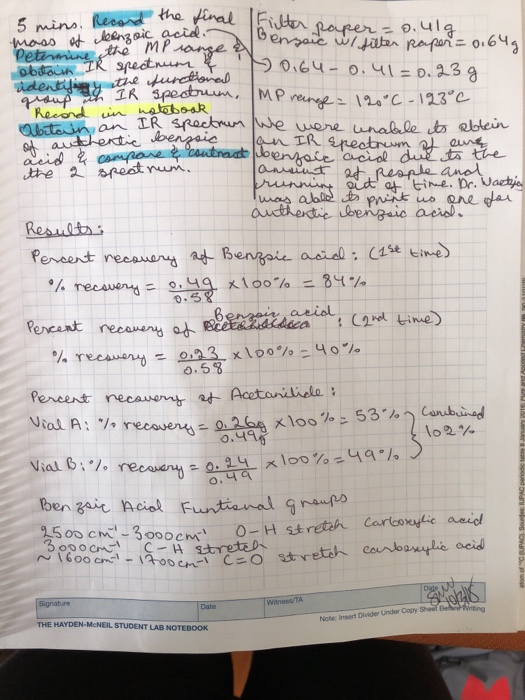 5 mins. Record the final
mass of benzoic acid.
Determine the MP range &
obtain IR spectrum &
identify the functional
group in IR spectrum.
Record in notebook
Obtain an IR spectrum
of authentic benzoic
acid & compare & contrast
the 2 spectrum.
Filter paper = 0.41g
Benzoic w/ filter paper = 0.64g
→ 0.64 - 0.41 = 0.23 g
MP range = 120°C - 123°C
We were unable to obtein
an IR spectrum of our
benzoic acid due to the
amount of people and
running out of time. Dr.
was able to print us one for
authentic benzoic acid.
Results:
Percent recovery of Benzoic acid: (1st time)
% recovery = 0.49/0.58 x100% = 84%
Percent recovery of Benzoic acid: (2nd time)
% recovery = 0.23/0.58 x100% = 40%
Percent recovery of Acetanilide:
Vial A: % recovery = 0.26g/0.49g x100% = 53%
Vial B: % recovery = 0.24/0.49 x100% = 49%
Combined
102%
Benzoic Acid Funtional groups
2500 cm⁻¹ - 3000 cm⁻¹ O-H stretch Carboxylic acid
3000 cm⁻¹ C-H stretch
~1600 cm⁻¹ - 1700 cm⁻¹ C=O stretch carboxylic acid
Signature
Date
Witness/TA
Date
THE HAYDEN-McNEIL STUDENT LAB NOTEBOOK
Note: Insert Divider Under Copy Sheet Before Writing